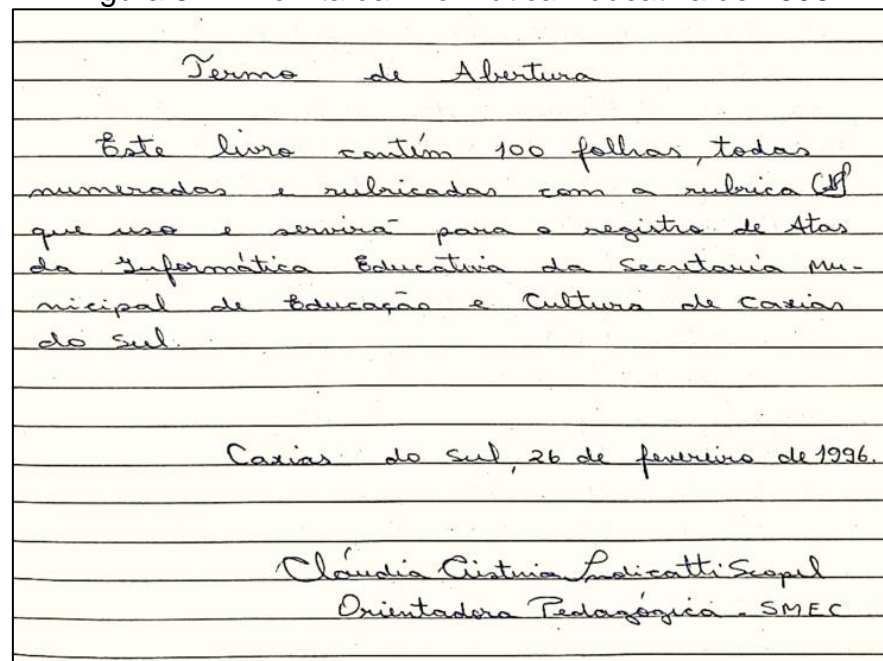 Termo de Abertura
Este livro contém 100 folhas, todas
numeradas e rubricadas com a rubrica
que uso e servirá para o registro de Atas
da Informática Educativa da Secretaria Mu-
nicipal de Educação e Cultura de Caxias
do Sul.
Caxias do Sul, 26 de fevereiro de 1996.
Cláudia Cristina Scopel
Orientadora Pedagógica - SMEC